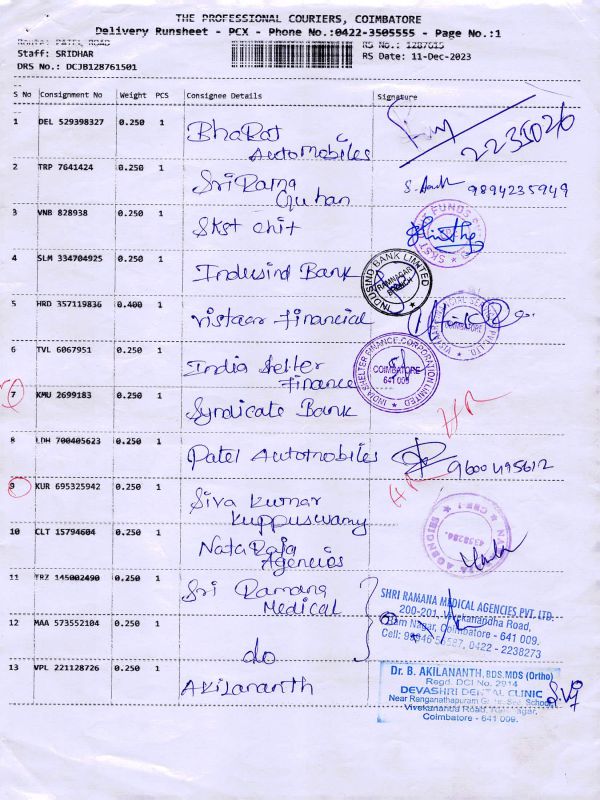 THE PROFESSIONAL COURIERS, COIMBATORE
Delivery Runsheet - PCX - Phone No.:0422-3505555 - Page No.:1
PATEL ROAD RS No.: 1287615
Staff: SRIDHAR RS Date: 11-Dec-2023
DRS No.: DCJB128761501
S No Consignment No Weight PCS Consignee Details Signature
1 DEL 529398327 0.250 1 Bharat
Automobiles 2235026
2 TRP 7641424 0.250 1 Sri Rama
Guhan 9894235949
3 VNB 828938 0.250 1 SKST Chit
4 SLM 334704925 0.250 1 Indusind Bank
INDUSIND BANK LIMITED
RAMNAGAR
BRANCH
5 HRD 357119836 0.400 1 Vistaar Financial
COIMBATORE
6 TVL 6067951 0.250 1 India Shelter
Finance
INDIA SHELTER FINANCE CORPORATION LIMITED
COIMBATORE
641 009
7 KMU 2699183 0.250 1 Syndicate Bank HR
8 LDH 700405623 0.250 1 Patel Automobiles 9600495612
9 KUR 695325942 0.250 1 Siva Kumar
Kuppuswamy
10 CLT 15794604 0.250 1 Nataraja
Agencies
4338286
11 TRZ 145002490 0.250 1 Sri Ramana
Medical
SHRI RAMANA MEDICAL AGENCIES PVT. LTD.
200-201, Vivekanandha Road,
Ram Nagar, Coimbatore - 641 009.
0422 - 2238273
12 MAA 573552104 0.250 1 do
13 VPL 221128726 0.250 1 Akilananth
Dr. B. AKILANANTH, BDS, MDS (Ortho)
Regd. DCI No. 2914
DEVASHRI DENTAL CLINIC
Near Ranganathapuram School,
Vivekananda Road, Ram Nagar,
Coimbatore - 641 009.